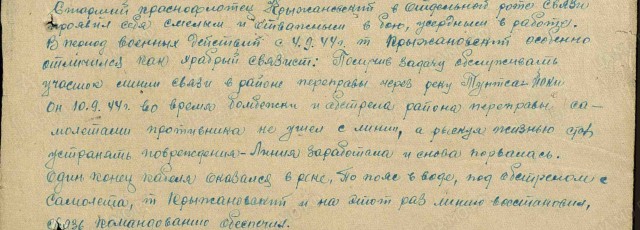 Старший краснофлотец Крыжановский в отдельной роте связи
проявил себя смелым и отважным в бою, усердным в работе.
В период военных действий с 4.9.44г. т Крыжановский особенно
отличился как храбрый связист: Получив задачу обслуживать
участок линии связи в районе переправы через реку Тунтса-Йоки
Он 10.9.44г. во время бомбежки и обстрела района переправы са-
молетами противника не ушел с линии, а рискуя жизнью стал
устранять повреждения-Линия заработала и снова порвалась.
Один конец кабеля оказался в реке. По пояс в воде, под обстрелом с
самолета, т Крыжановский и на этот раз линию восстановил,
связь командованию обеспечил.